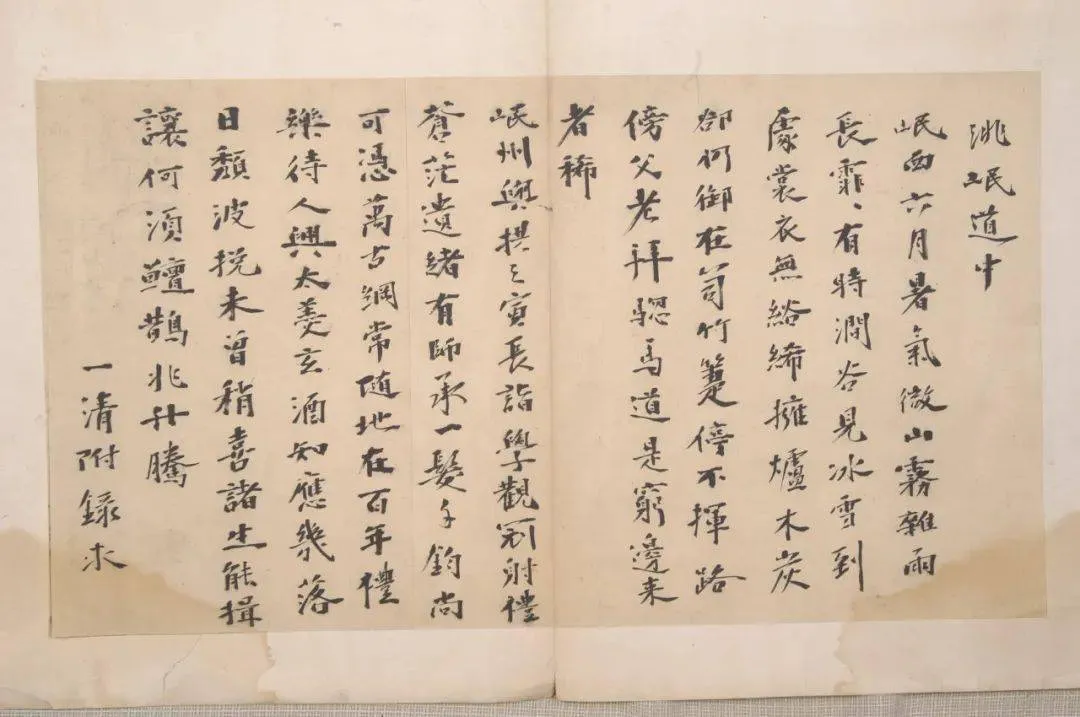 洮岷道中
岷西六月暑氣微山霧雜雨
長霏〻有時澗谷見冰雪到
處裳衣無綌絺擁爐木炭
郤仍御在笥竹箑傍不揮路
傍父老拜驄馬道是窮邊来
者稀
岷州與拱之寅長詣學觀冠射禮
蒼茫遺緒有師承一髮千鈞尚
可憑萬古綱常随地在百年禮
樂待人興太羮玄酒知應幾落
日頹波挽未曾稍喜諸生能揖
讓何湏鱣鵲兆升騰
一清附録求